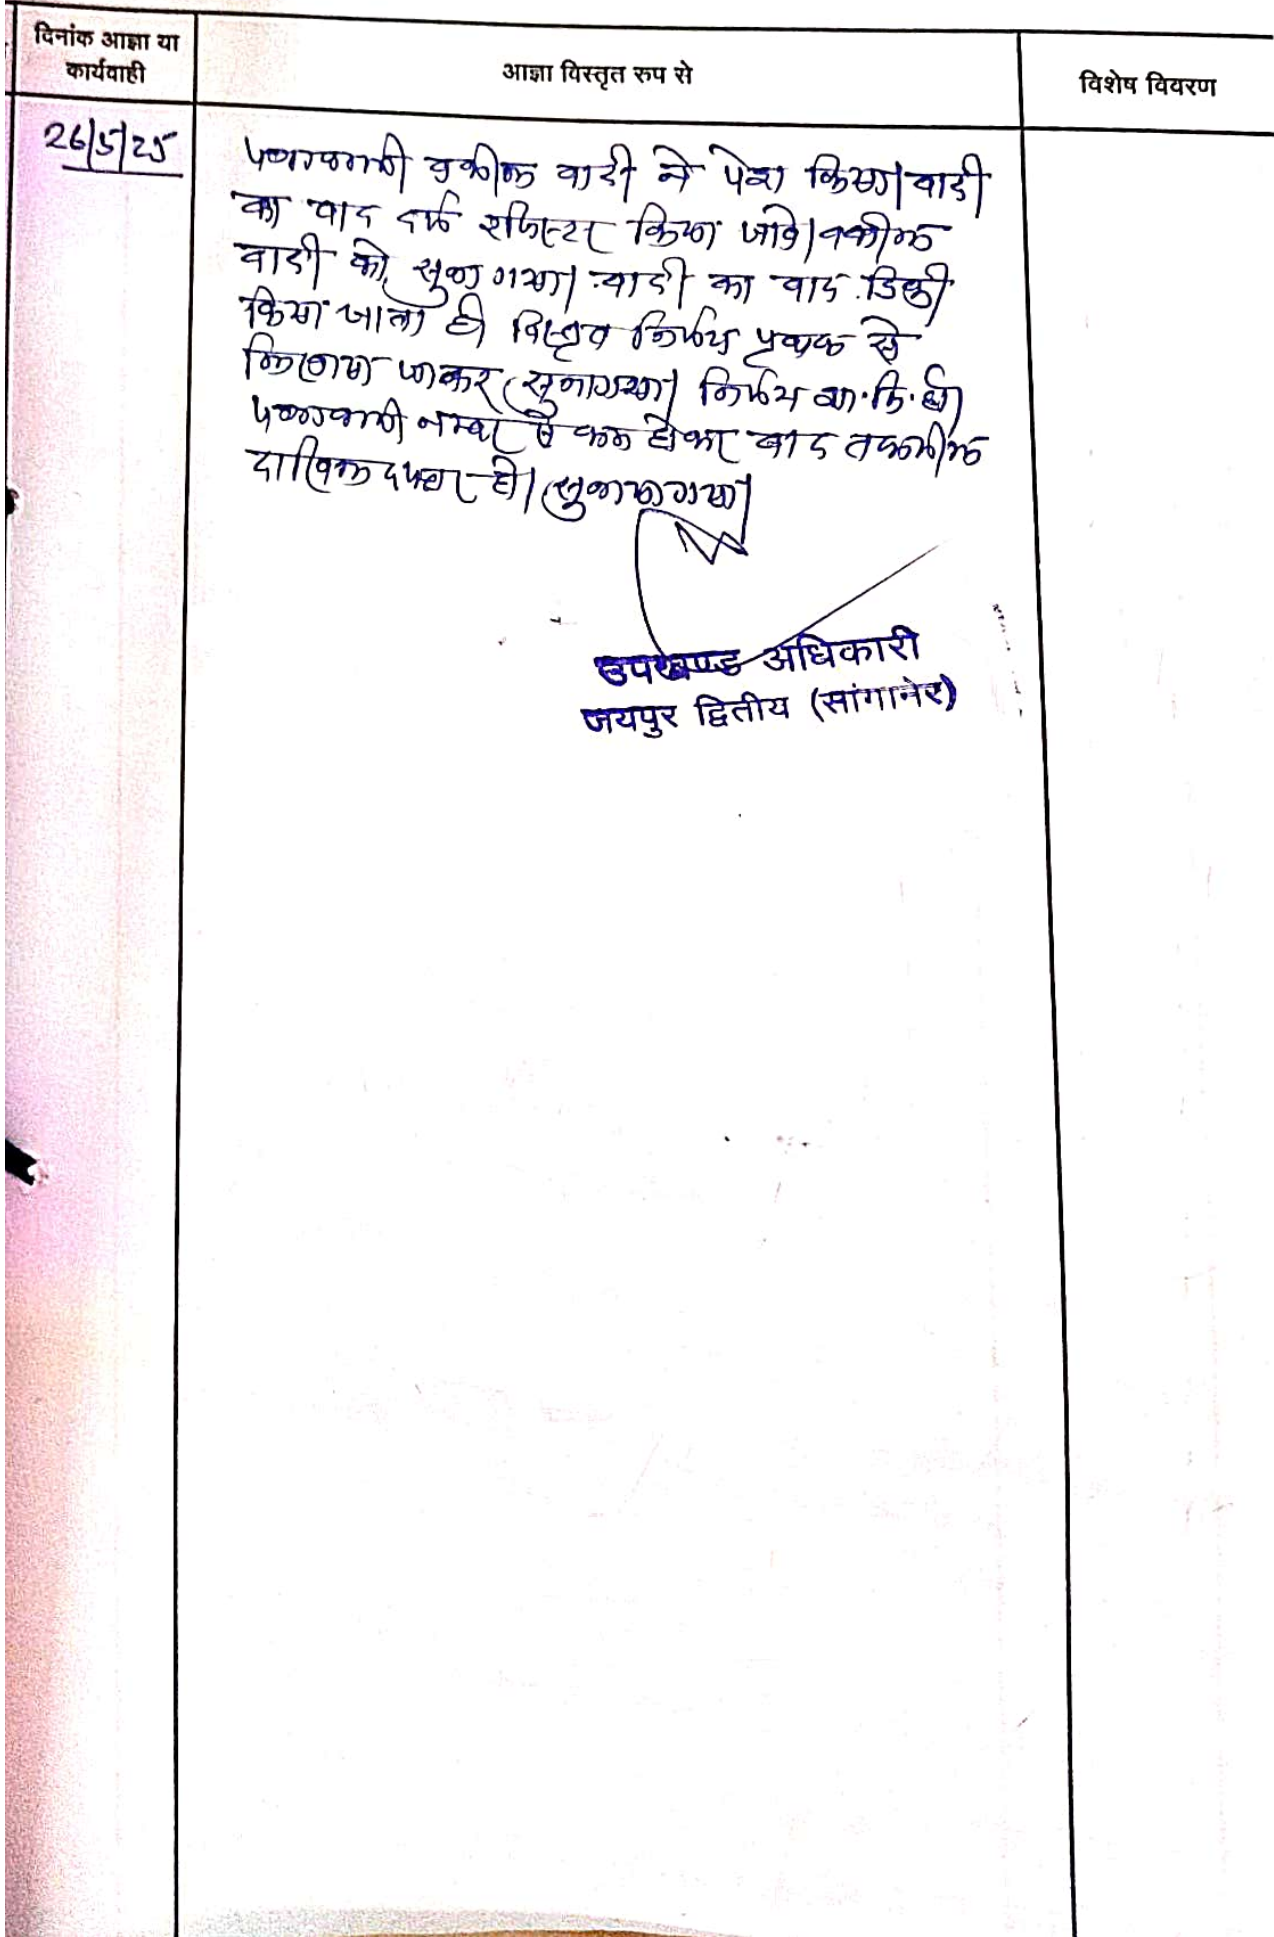 दिनांक आज्ञा या
कार्यवाही
आज्ञा विस्तृत रुप से
विशेष विवरण
26/5/25
पत्रावली वकील वादी ने पेश किया। वादी
का वाद दर्ज रजिस्टर किया जावे। वकील
वादी को सुना गया। वादी का वाद डिक्री
किया जाता है। विस्तृत निर्णय पृथक से
लिखाया जाकर सुनाया गया। निर्णय शा.मि. हो।
पत्रावली नम्बर से कम होकर बाद तकमील
दाखिल दफ्तर हो। सुनाया गया।
उपखण्ड अधिकारी
जयपुर द्वितीय (सांगानेर)